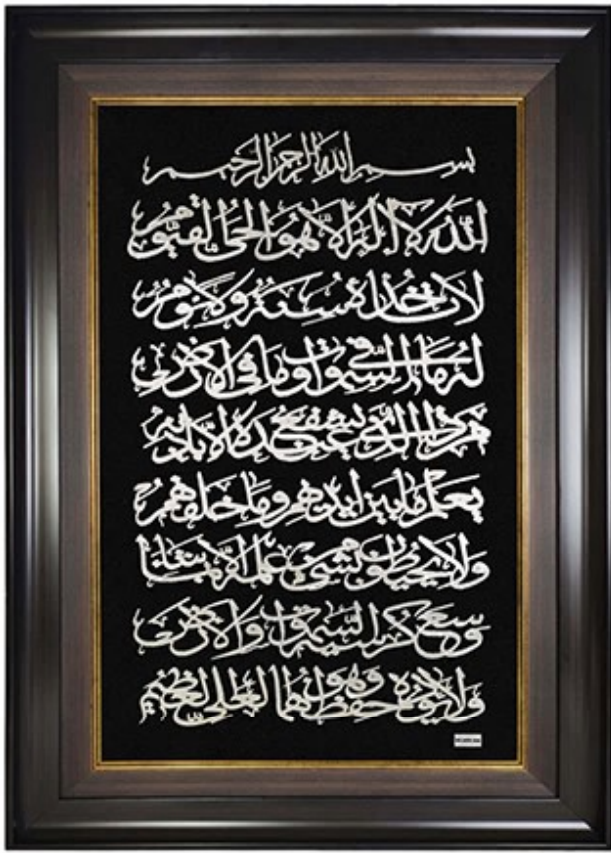 بسم الله الرحمن الرحيم
الله لا اله الا هو الحي القيوم
لا تاخذه سنة ولا نوم
له ما في السموات وما في الارض
من ذا الذي يشفع عنده الا باذنه
يعلم ما بين ايديهم وما خلفهم
ولا يحيطون بشيء من علمه الا بما شاء
وسع كرسيه السموات والارض
ولا يؤده حفظهما وهو العلي العظيم